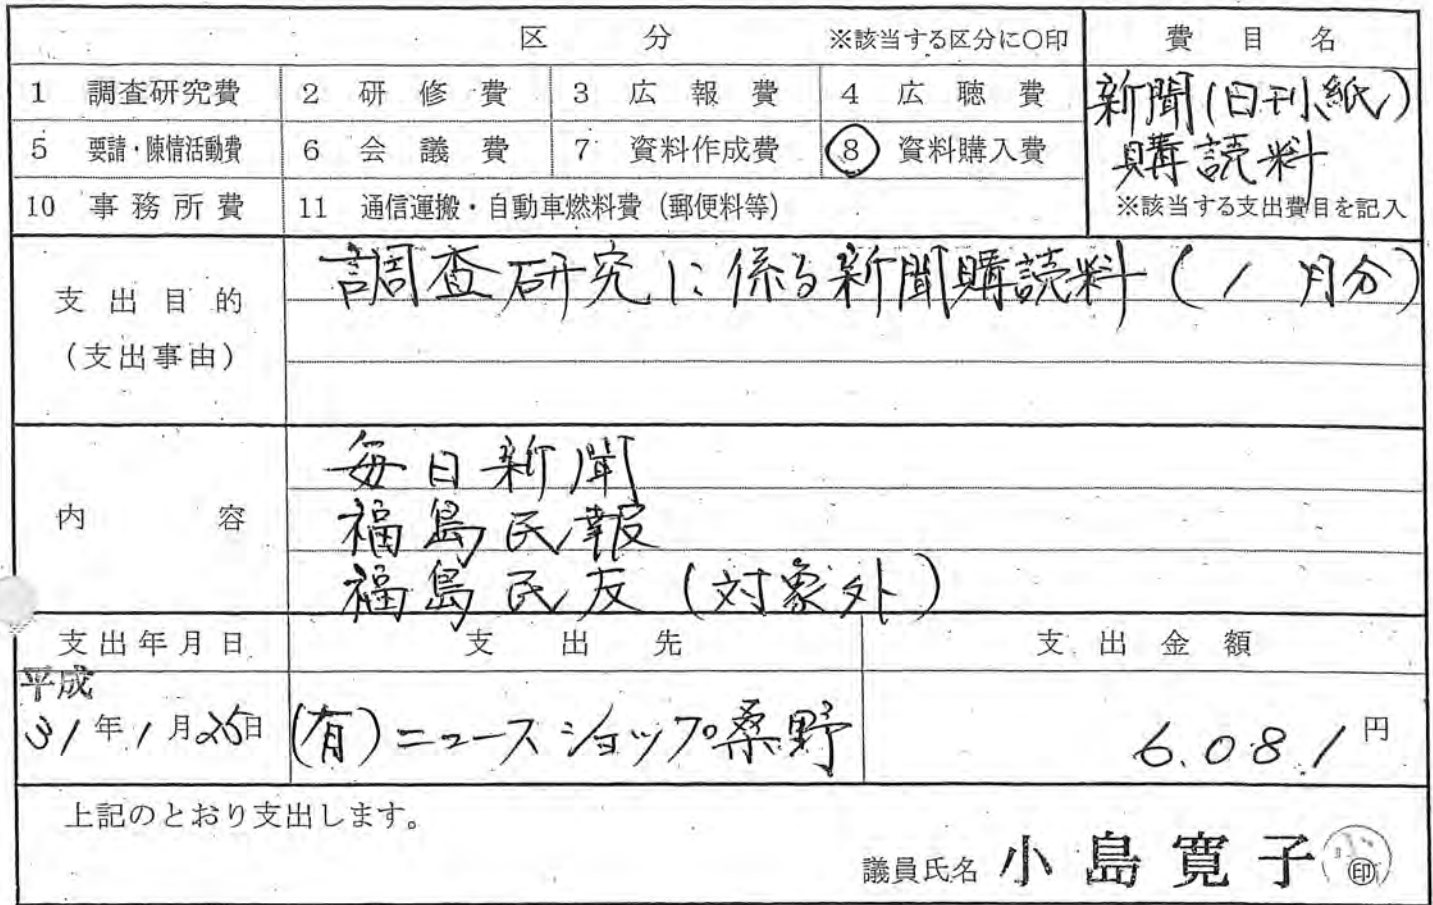 区 分 ※該当する区分に○印 費 目 名
1 調査研究費 2 研 修 費 3 広 報 費 4 広 聴 費
5 要請・陳情活動費 6 会 議 費 7 資料作成費 8 資料購入費
10 事 務 所 費 11 通信運搬・自動車燃料費（郵便料等）
新聞(日刊紙)
購読料
※該当する支出費目を記入
支 出 目 的
（支出事由）
調査研究に係る新聞購読料 ( 1 月分)
内 容
毎日新聞
福島民報
福島民友 (対象外)
支出年月日 支 出 先 支 出 金 額
平成
31年1月25日 (有)ニュースショップ桑野 6.081円
上記のとおり支出します。
議員氏名 小島寛子 印